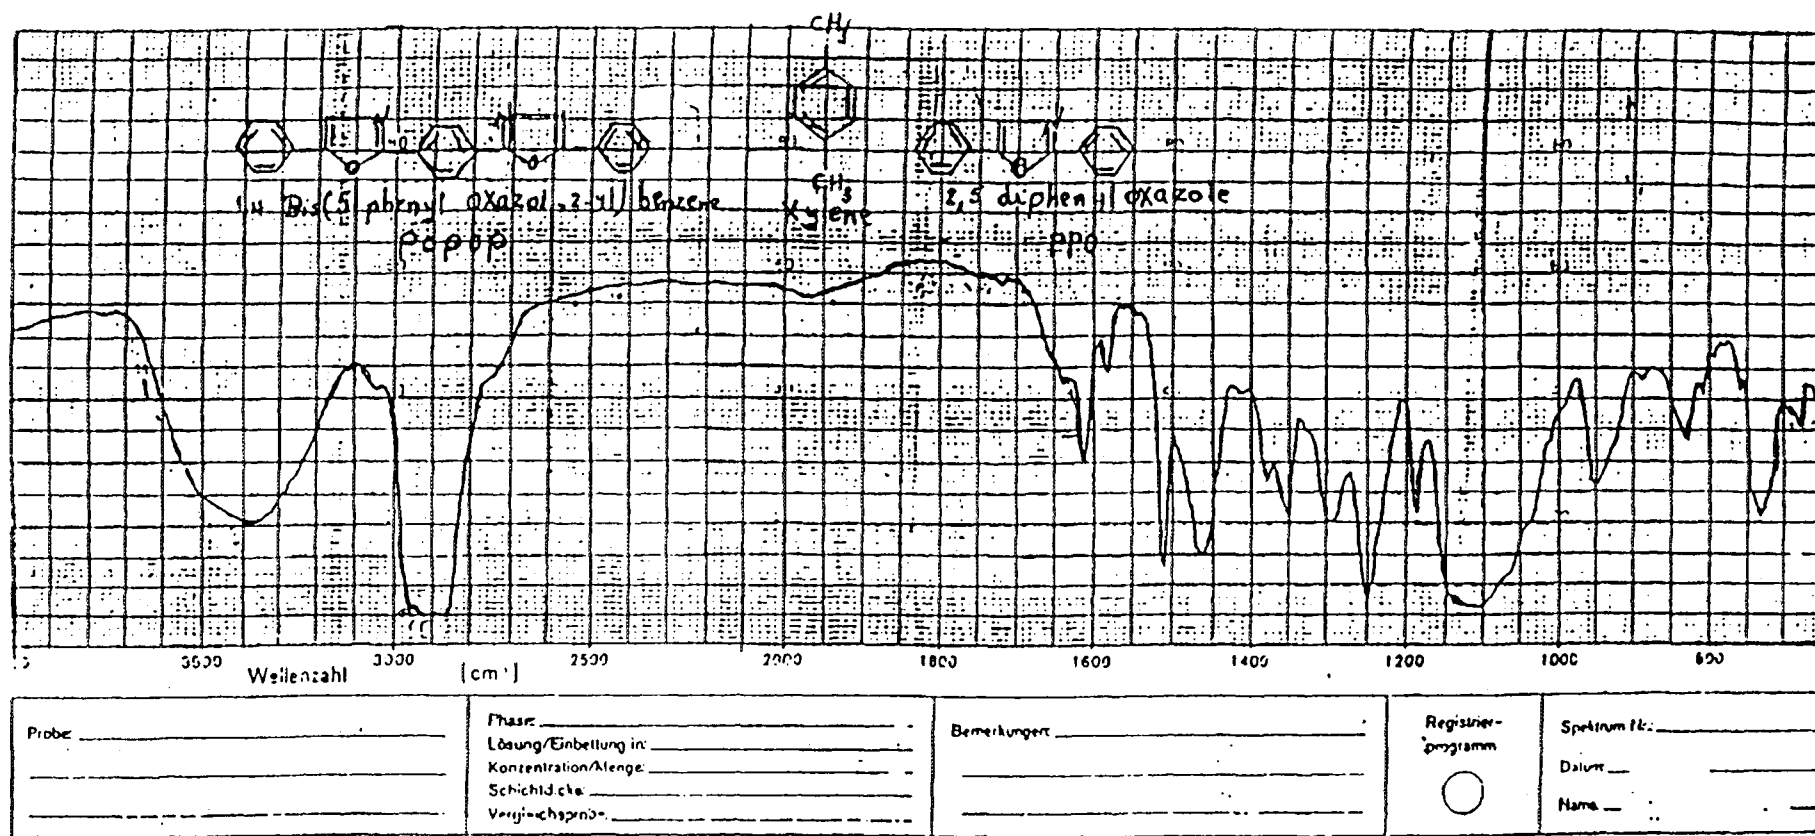 CH3
N N N
O O O
CH3
1,4 Bis(5 phenyl oxazol, 2-yl) benzene
Xylene
2,5 diphenyl oxazole
popop
ppo
3500 3300 2500 2000 1800 1600 1400 1200 1000 800
Wellenzahl [cm⁻¹]
Probe:
Phase:
Lösung/Einbettung in:
Konzentration/Menge:
Schichtdicke:
Vergleichsprobe:
Bemerkungen:
Registrier-
programm
Spektrum Nr.:
Datum
Name